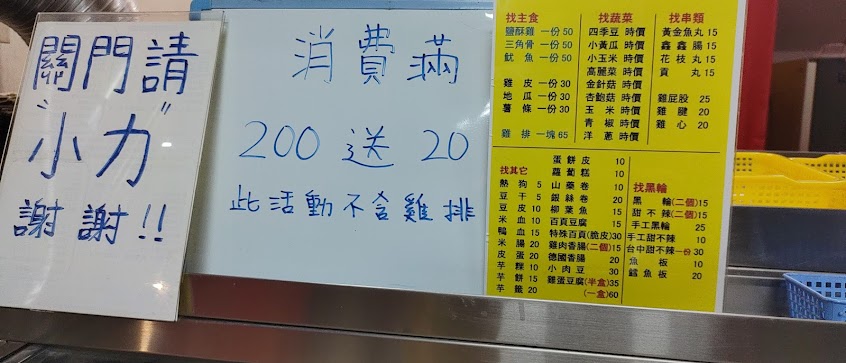 關門請
"小力"
謝謝!!
消費滿
200 送 20
此活動不含雞排
找主食
鹽酥雞 一份 50
三角骨 一份 50
魷魚 一份 50
雞皮 一份 30
地瓜 一份 30
薯條 一份 30
雞排 一塊 65
找蔬菜
四季豆 時價
小黃瓜 時價
小玉米 時價
高麗菜 時價
金針菇 時價
杏鮑菇 時價
玉米 時價
青椒 時價
洋蔥 時價
找串類
黃金魚丸 15
鑫鑫腸 15
花枝丸 15
貢丸 15
雞屁股 25
雞腱 20
雞心 20
找其它
熱狗 5
豆干 5
豆皮 10
米血 10
鴨血 15
米腸 20
皮蛋 20
芋粿 10
芋餅 15
芋籤 20
蛋餅皮 10
蘿蔔糕 10
山藥卷 10
銀絲卷 20
柳葉魚 15
百頁豆腐 15
特殊百頁(脆皮) 30
雞肉香腸(二個) 15
德國香腸 20
小肉豆 30
雞蛋豆腐(半盒) 35
(一盒) 60
找黑輪
黑輪(二個) 15
甜不辣(二個) 15
手工黑輪 25
手工甜不辣 10
台中甜不辣一份 30
魚板 10
鱈魚板 20